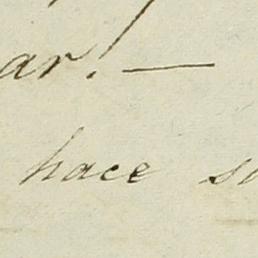 ar! —
hace